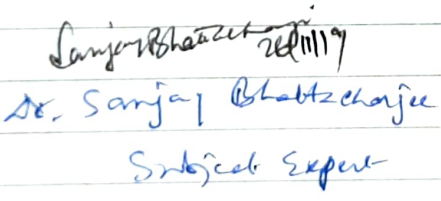 Sanjay Bhattacharjee 28/11/19
Dr. Sanjay Bhattacharjee
Subject Expert